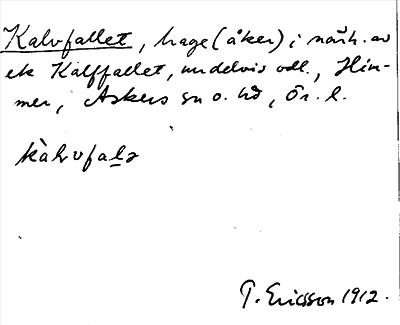 Kalvfallet, hage (åker) i närh. av
ek Kalffallet, undelvis odl., Him-
mer, Askers sn o. hd, Ör. l.
kàlvfala
T. Ericsson 1912.